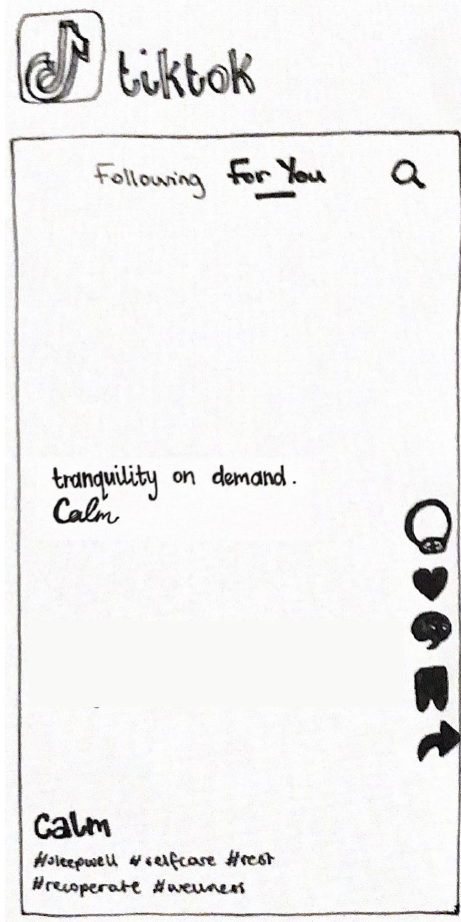 tiktok
Following For You
tranquility on demand.
Calm
Calm
#sleepwell #selfcare #rest
#recoperate #wellness